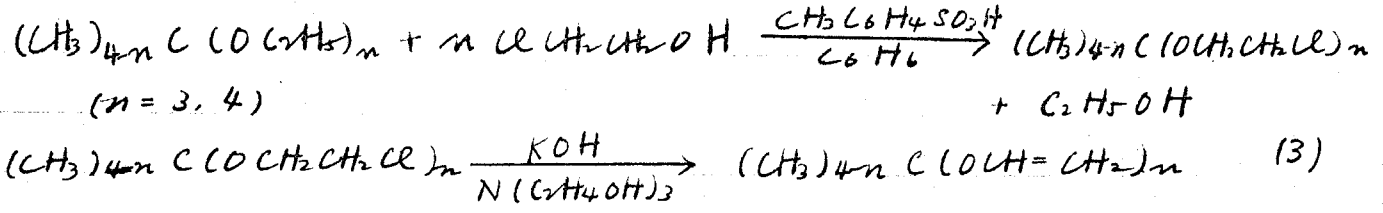 (CH₃)₄₋ₙ C (OC₂H₅)ₙ + n ClCH₂CH₂OH —CH₃C₆H₄SO₃H / C₆H₆→ (CH₃)₄₋ₙ C (OCH₂CH₂Cl)ₙ
(n = 3, 4) + C₂H₅OH
(CH₃)₄₋ₙ C (OCH₂CH₂Cl)ₙ —KOH / N(C₂H₄OH)₃→ (CH₃)₄₋ₙ C (OCH=CH₂)ₙ (3)